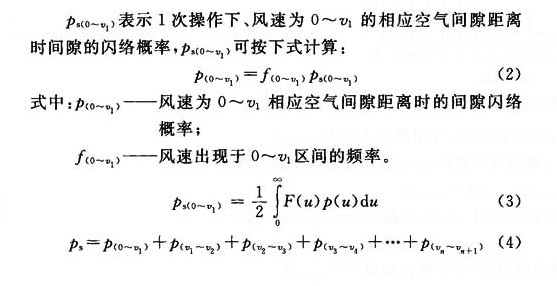 p_{s(0~v₁)}表示1次操作下、风速为0~v₁的相应空气间隙距离
时间隙的闪络概率,p_{s(0~v₁)}可按下式计算:
p_{(0~v₁)}=f_{(0~v₁)}p_{s(0~v₁)} (2)
式中:p_{(0~v₁)}——风速为0~v₁相应空气间隙距离时的间隙闪络
概率;
f_{(0~v₁)}——风速出现于0~v₁区间的频率。
p_{s(0~v₁)} = \frac{1}{2}\int_0^∞ F(u)p(u)du (3)
p_s=p_{(0~v₁)}+p_{(v₁~v₂)}+p_{(v₂~v₃)}+p_{(v₃~v₄)}+⋯+p_{(v_n~v_{n+1})} (4)